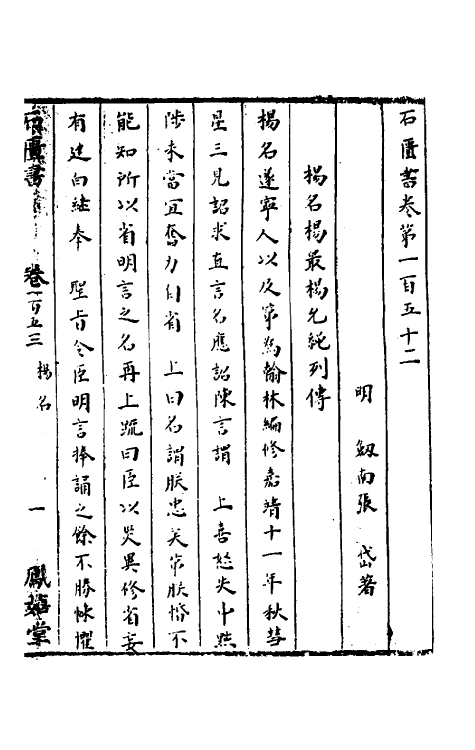 石匱書卷第一百五十二
明 劔南張 岱著
楊名楊最楊允繩列傳
楊名遂寧人以及第為翰林編修嘉靖十一年秋彗
星三見詔求直言名應詔陳言謂 上喜怒失中黜
陟未當宜奮力自省 上曰名謂朕忠美常朕惛不
能知所以省明言之名再上䟽曰臣以災異修省妄
有建白继奉 聖旨令臣明言捧誦之餘不勝悚懼
石匱書 卷一百五三 楊名 一 鳳嬉堂